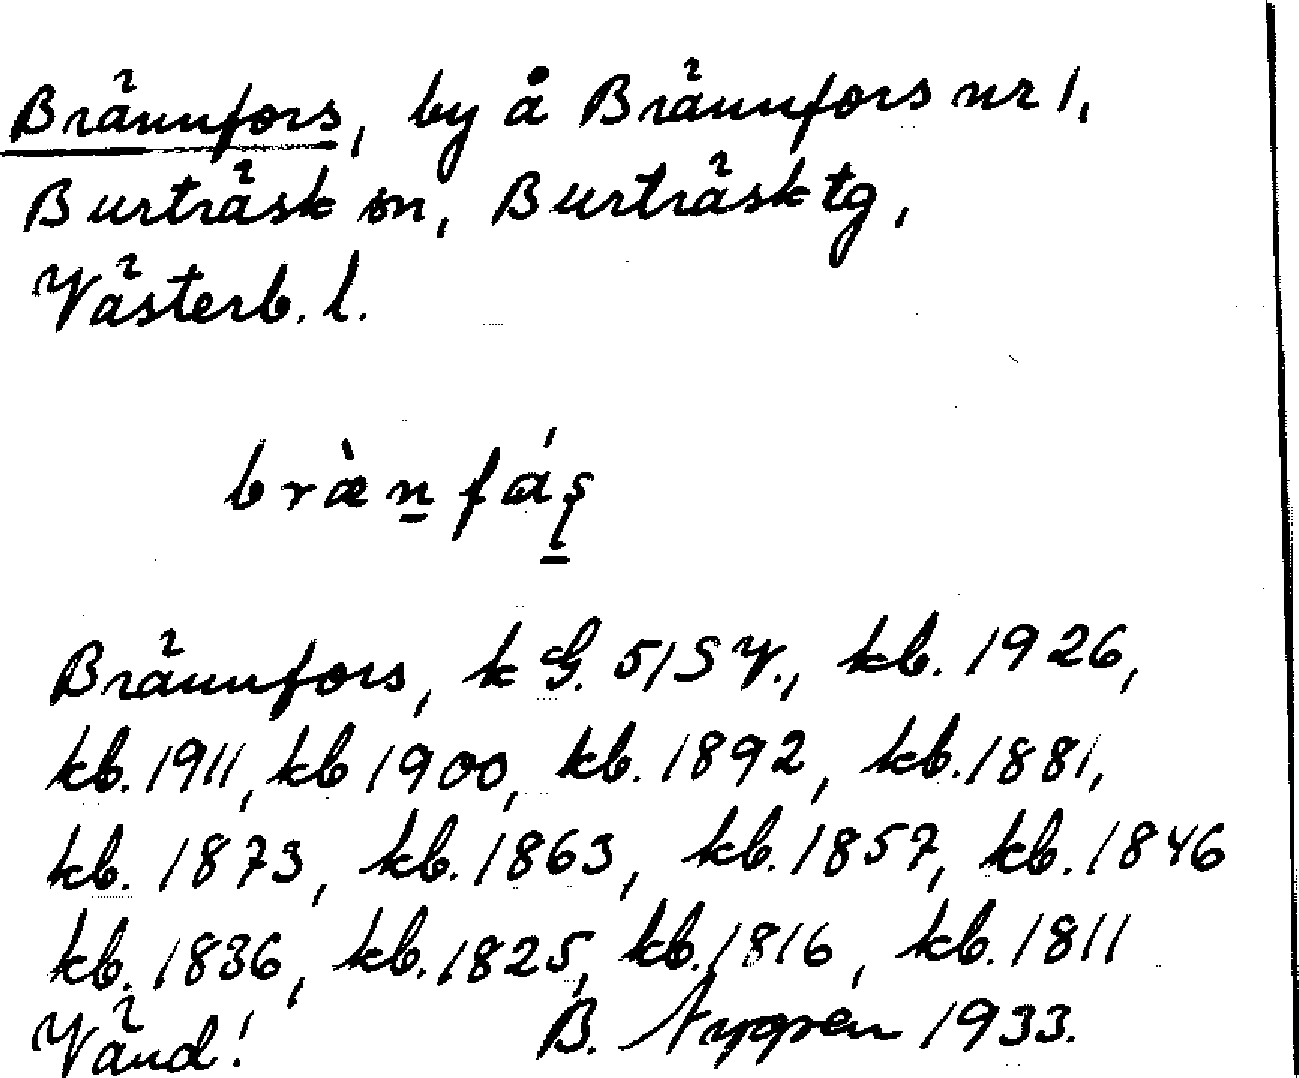 Brännfors, by å Brännfors nr 1,
Burträsk sn, Burträsk tg,
Västerb. l.
Brännfors, k G. 51 S V., kb. 1926,
kb. 1911, kb 1900, kb. 1892, kb. 1881,
kb. 1873, kb. 1863, kb. 1857, kb. 1846
kb. 1836, kb. 1825, kb. 1816, kb. 1811
Vänd! B. Nygren 1933.